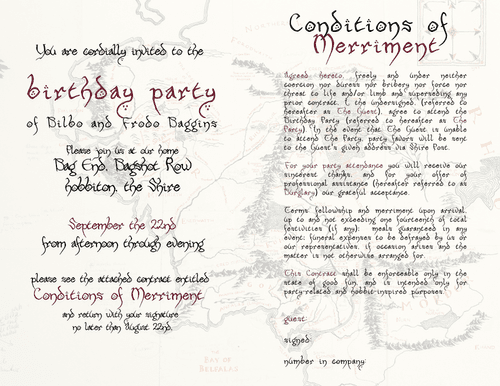 You are cordially invited to the
birthday party
of Bilbo and Frodo Baggins
Please join us at our home
Bag End, Bagshot Row
Hobbiton, the Shire
September the 22nd
from afternoon through evening
please see the attached contract entitled
Conditions of Merriment
and return with your signature
no later than August 22nd.
Conditions of
Merriment
Agreed hereto, freely and under neither
coercion nor duress nor bribery nor force nor
threat to life and/or limb and superseding any
prior contract, I, the undersigned, (referred to
hereafter as The Guest), agree to attend the
Birthday Party (referred to hereafter as The
Party). In the event that The Guest is unable
to attend The Party, party favors will be sent
to the Guest's given address via Shire Post.
For your party attendance you will receive our
sincerest thanks, and for your offer of
professional assistance (hereafter referred to as
Burglary) our grateful acceptance.
Terms: fellowship and merriment upon arrival,
up to and not exceeding one fourteenth of total
festivities (if any); meals guaranteed in any
event; funeral expenses to be defrayed by us or
our representatives, if occasion arises and the
matter is not otherwise arranged for.
This Contract shall be enforceable only in the
state of good fun, and is intended only for
party-related, hobbit-inspired purposes.
guest
signed
number in company
BAY OF
BELFALAS